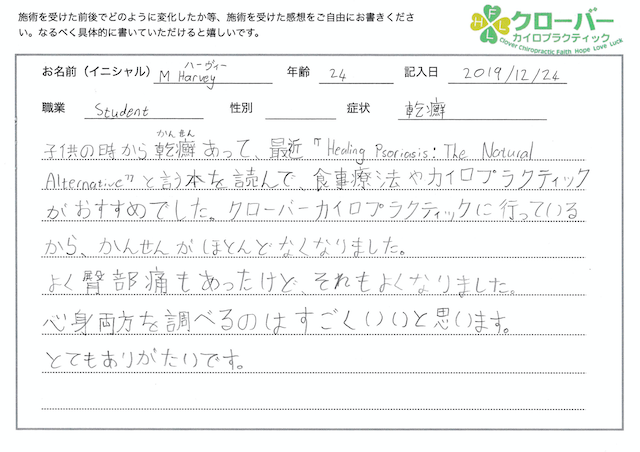 施術を受けた前後でどのように変化したか等、施術を受けた感想をご自由にお書きくださ
い。なるべく具体的に書いていただけると嬉しいです。
F H L L
クローバー
カイロプラクティック
Clover Chiropractic Faith Hope Love Luck
ハーヴィー
お名前（イニシャル） M Harvey 年齢 24 記入日 2019/12/24
職業 Student 性別 症状 乾癬
かんせん
子供の時から乾癬あって、最近"Healing Psoriasis: The Natural
Alternative"と言う本を読んで、食事療法やカイロプラクティック
がおすすめでした。クローバーカイロプラクティックに行っている
から、かんせんがほとんどなくなりました。
よく臀部痛もあったけど、それもよくなりました。
心身両方を調べるのはすごくいいと思います。
とてもありがたいです。